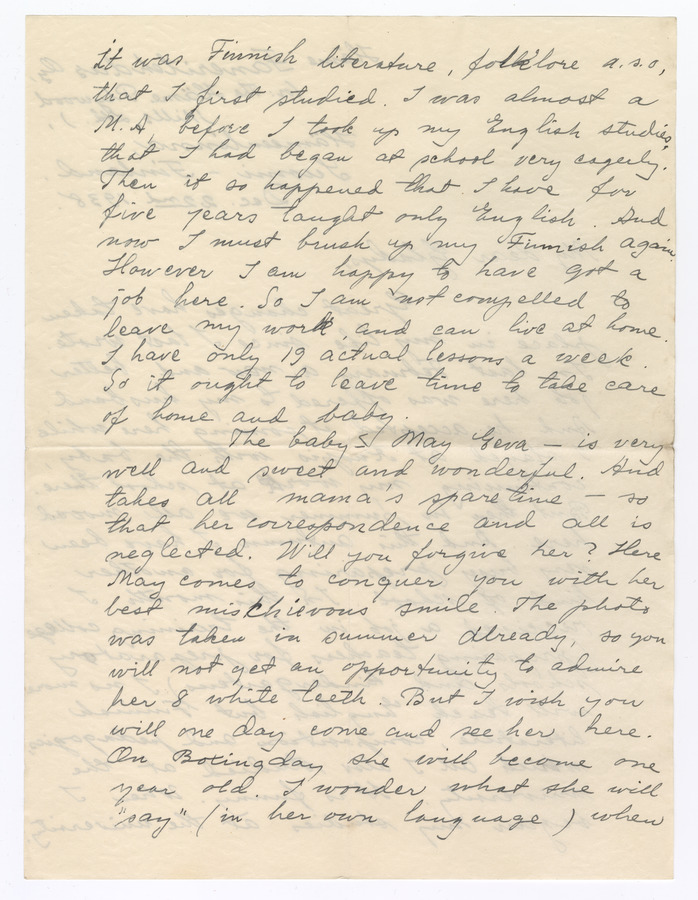 it was Finnish literature, folklore a.s.o,
that I first studied. I was almost a
M.A. before I took up my English studies,
that I had began at school very eagerly.
Then it so happened that I have for
five years taught only English. And
now I must brush up my Finnish again.
However I am happy to have got a
job here. So I am not compelled to
leave my work, and can live at home.
I have only 19 actual lessons a week.
So it ought to leave time to take care
of home and baby.
The baby - May Geva — is very
well and sweet and wonderful. And
takes all mama's sparetime — so
that her correspondence and all is
neglected. Will you forgive her? Here
May comes to conquer you with her
best mischievous smile. The photo
was taken in summer already, so you
will not get an opportunity to admire
her 8 white teeth. But I wish you
will one day come and see her here.
On Boxingday she will become one
year old. I wonder what she will
"say" (in her own language) when